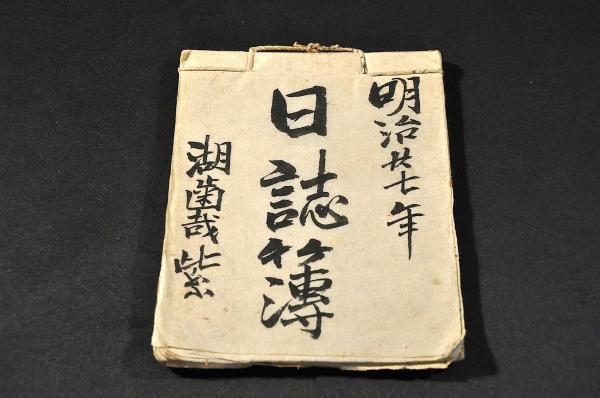 明治廿七年
日誌簿
湖菌哉紫